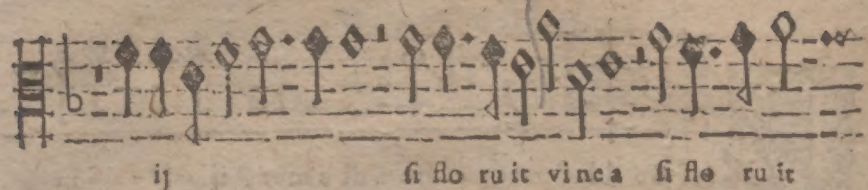 ij si flo ru it vinea si flo ru it